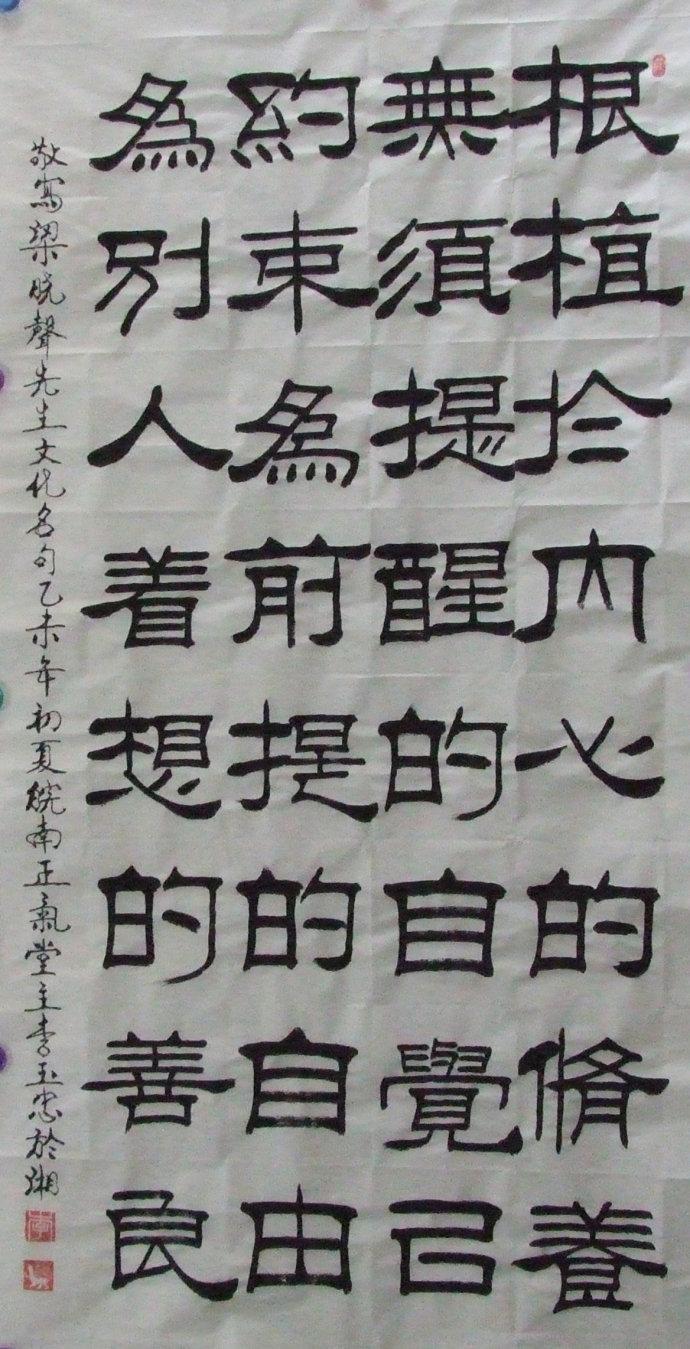 根植於内心的脩養
無須提醒的自覺㠯
約束為前提的自由
為別人着想的善良
敬寫梁晓聲先生文化名句乙未年初夏皖南正氣堂主李玉忠於湘